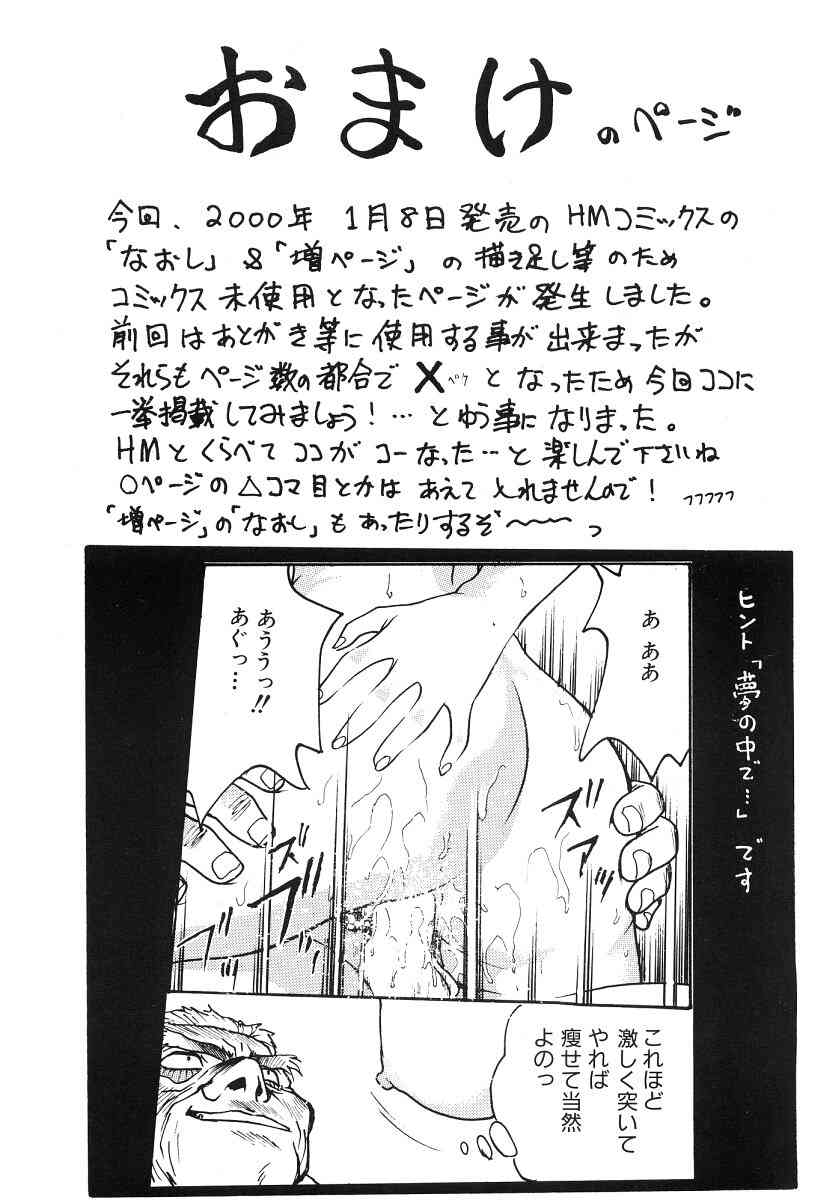 おまけのページ
今回、2000年 1月8日発売の HMコミックスの
「なおし」&「増ページ」の描き足し等のため
コミックス未使用となったページが発生しました。
前回はあとがき等に使用する事が出来まったが
それらもページ数の都合で X ペケ となったため今回ココに
一挙掲載してみましょう!…とゆう事になりました。
HMとくらべてココがコーなった…と楽しんで下さいね
○ページの△コマ目とかは あえて とれませんので! フフフフフ
「増ページ」の「なおし」もあったりするぞ〜〜〜っ
ヒント「夢の中で…」です
あ ああ
あううっ!!
あぐっ…
ズアッ
ズブッ
これほど
激しく突いて
やれば
痩せて当然
よのっ